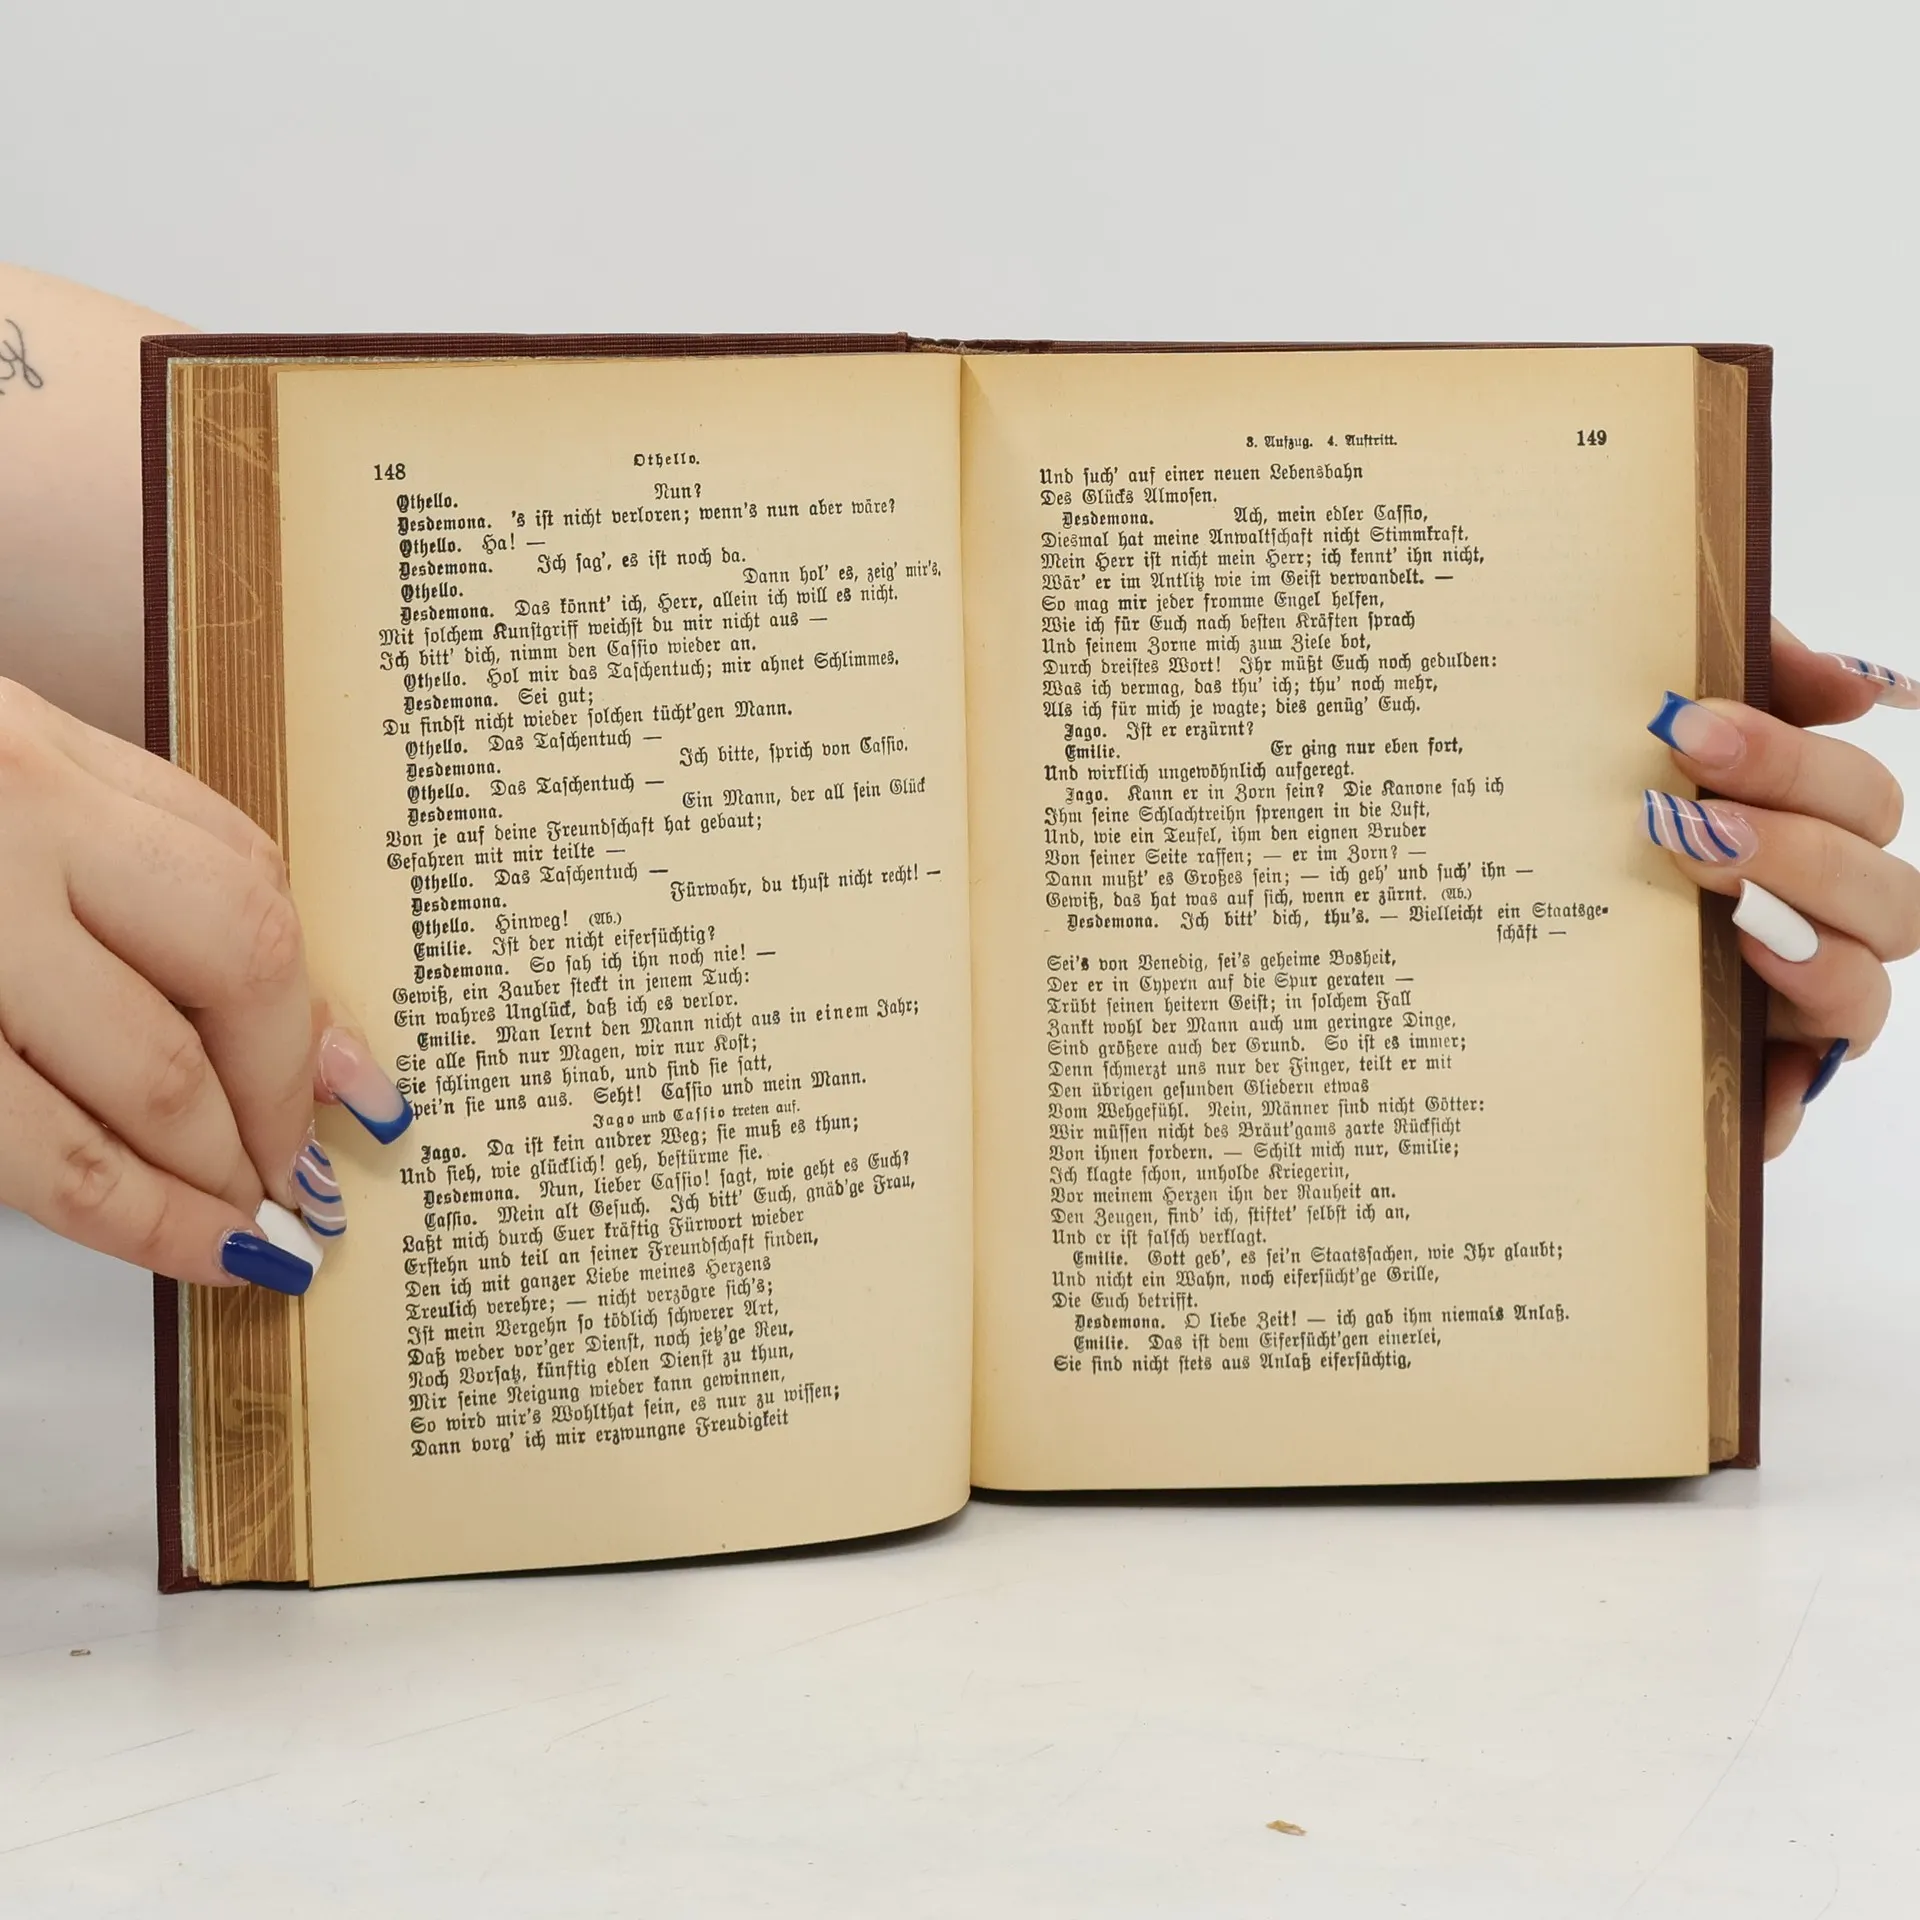 148
Othello.
Othello. Nun?
Desdemona. 's ist nicht verloren; wenn's nun aber wäre?
Othello. Ha! —
Desdemona. Ich sag', es ist noch da.
Othello. Dann hol' es, zeig' mir's.
Desdemona. Das könnt' ich, Herr, allein ich will es nicht.
Mit solchem Kunstgriff weichst du mir nicht aus —
Ich bitt' dich, nimm den Cassio wieder an.
Othello. Hol mir das Taschentuch; mir ahnet Schlimmes.
Desdemona. Sei gut;
Du findst nicht wieder solchen tücht'gen Mann.
Othello. Das Taschentuch —
Desdemona. Ich bitte, sprich von Cassio.
Othello. Das Taschentuch —
Desdemona. Ein Mann, der all sein Glück
Von je auf deine Freundschaft hat gebaut;
Gefahren mit mir teilte —
Othello. Das Taschentuch —
Desdemona. Fürwahr, du thust nicht recht! —
Othello. Hinweg! (Ab.)
Emilie. Ist der nicht eifersüchtig?
Desdemona. So sah ich ihn noch nie! —
Gewiß, ein Zauber steckt in jenem Tuch:
Ein wahres Unglück, daß ich es verlor.
Emilie. Man lernt den Mann nicht aus in einem Jahr;
Sie alle sind nur Magen, wir nur Kost;
Sie schlingen uns hinab, und sind sie satt,
spei'n sie uns aus. Seht! Cassio und mein Mann.
Jago und Cassio treten auf.
Jago. Da ist kein andrer Weg; sie muß es thun;
Und sieh, wie glücklich! geh, bestürme sie.
Desdemona. Nun, lieber Cassio! sagt, wie geht es Euch?
Cassio. Mein alt Gesuch. Ich bitt' Euch, gnäd'ge Frau,
Laßt mich durch Euer kräftig Fürwort wieder
Erstehn und teil an seiner Freundschaft finden,
Den ich mit ganzer Liebe meines Herzens
Treulich verehre; — nicht verzögre sich's;
Ist mein Vergehn so tödlich schwerer Art,
Daß weder vor'ger Dienst, noch jetz'ge Reu,
Noch Vorsatz, künftig edlen Dienst zu thun,
Mir seine Neigung wieder kann gewinnen,
So wird mir's Wohlthat sein, es nur zu wissen;
Dann borg' ich mir erzwungne Freudigkeit
3. Aufzug. 4. Auftritt.
149
Und such' auf einer neuen Lebensbahn
Des Glücks Almosen.
Desdemona. Ach, mein edler Cassio,
Diesmal hat meine Anwaltschaft nicht Stimmkraft.
Mein Herr ist nicht mein Herr; ich kennt' ihn nicht,
Wär' er im Antlitz wie im Geist verwandelt. —
So mag mir jeder fromme Engel helfen,
Wie ich für Euch nach besten Kräften sprach
Und seinem Zorne mich zum Ziele bot,
Durch dreistes Wort! Ihr müßt Euch noch gedulden:
Was ich vermag, das thu' ich; thu' noch mehr,
Als ich für mich je wagte; dies genüg' Euch.
Jago. Ist er erzürnt?
Emilie. Er ging nur eben fort,
Und wirklich ungewöhnlich aufgeregt.
Jago. Kann er in Zorn sein? Die Kanone sah ich
Ihm seine Schlachtreihn sprengen in die Luft,
Und, wie ein Teufel, ihm den eignen Bruder
Von seiner Seite raffen; — er im Zorn? —
Dann mußt' es Großes sein; — ich geh' und such' ihn —
Gewiß, das hat was auf sich, wenn er zürnt. (Ab.)
Desdemona. Ich bitt' dich, thu's. — Vielleicht ein Staatsge-
schäft —
Sei's von Venedig, sei's geheime Bosheit,
Der er in Cypern auf die Spur geraten —
Trübt seinen heitern Geist; in solchem Fall
Zankt wohl der Mann auch um geringre Dinge,
Sind größere auch der Grund. So ist es immer;
Denn schmerzt uns nur der Finger, teilt er mit
Den übrigen gesunden Gliedern etwas
Vom Wehgefühl. Nein, Männer sind nicht Götter:
Wir müssen nicht des Bräut'gams zarte Rücksicht
Von ihnen fordern. — Schilt mich nur, Emilie;
Ich klagte schon, unholde Kriegerin,
Vor meinem Herzen ihn der Rauheit an.
Den Zeugen, find' ich, stiftet' selbst ich an,
Und er ist falsch verklagt.
Emilie. Gott geb', es sei'n Staatssachen, wie Ihr glaubt;
Und nicht ein Wahn, noch eifersücht'ge Grille,
Die Euch betrifft.
Desdemona. O liebe Zeit! — ich gab ihm niemals Anlaß.
Emilie. Das ist dem Eifersücht'gen einerlei,
Sie sind nicht stets aus Anlaß eifersüchtig,